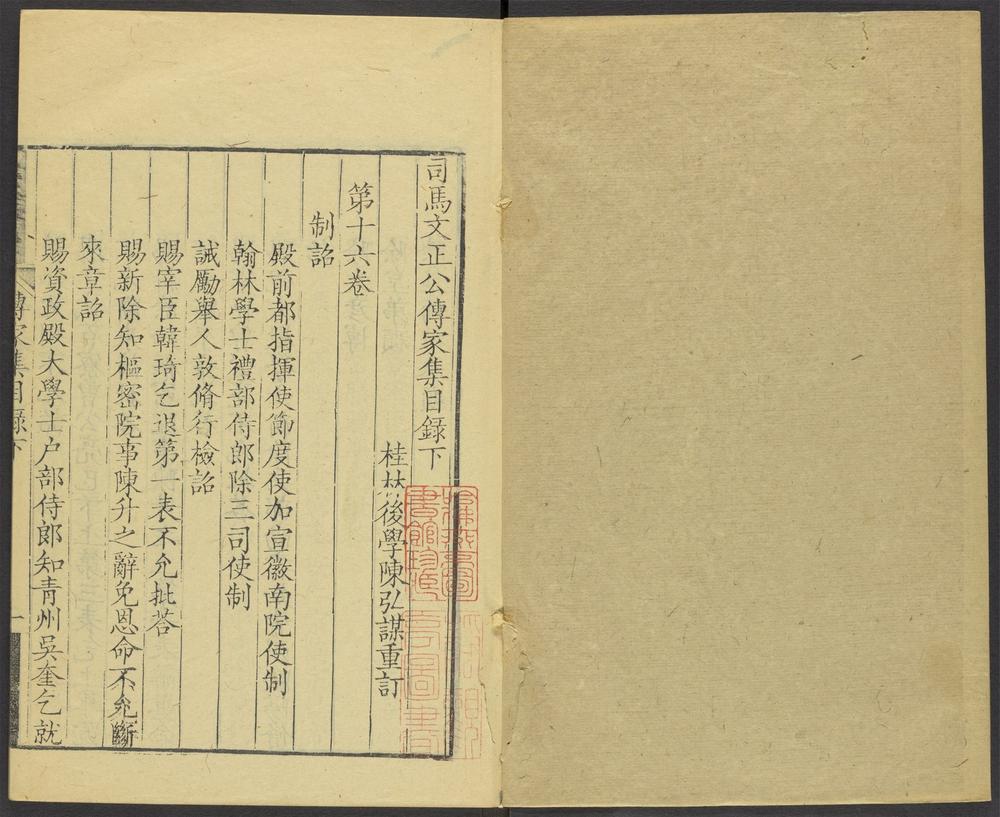 司馬文正公傳家集目錄下
桂林後學陳弘謀重訂
第十六卷
制詔
殿前都指揮使節度使加宣徽南院使制
翰林學士禮部侍郎除三司使制
誡勵舉人敦脩行檢詔
賜宰臣韓琦乞退第一表不允批荅
賜新除知樞密院事陳升之辭免恩命不允斷
來章詔
賜資政殿大學士户部侍郎知青州吳奎乞就
傳家集目錄下
一